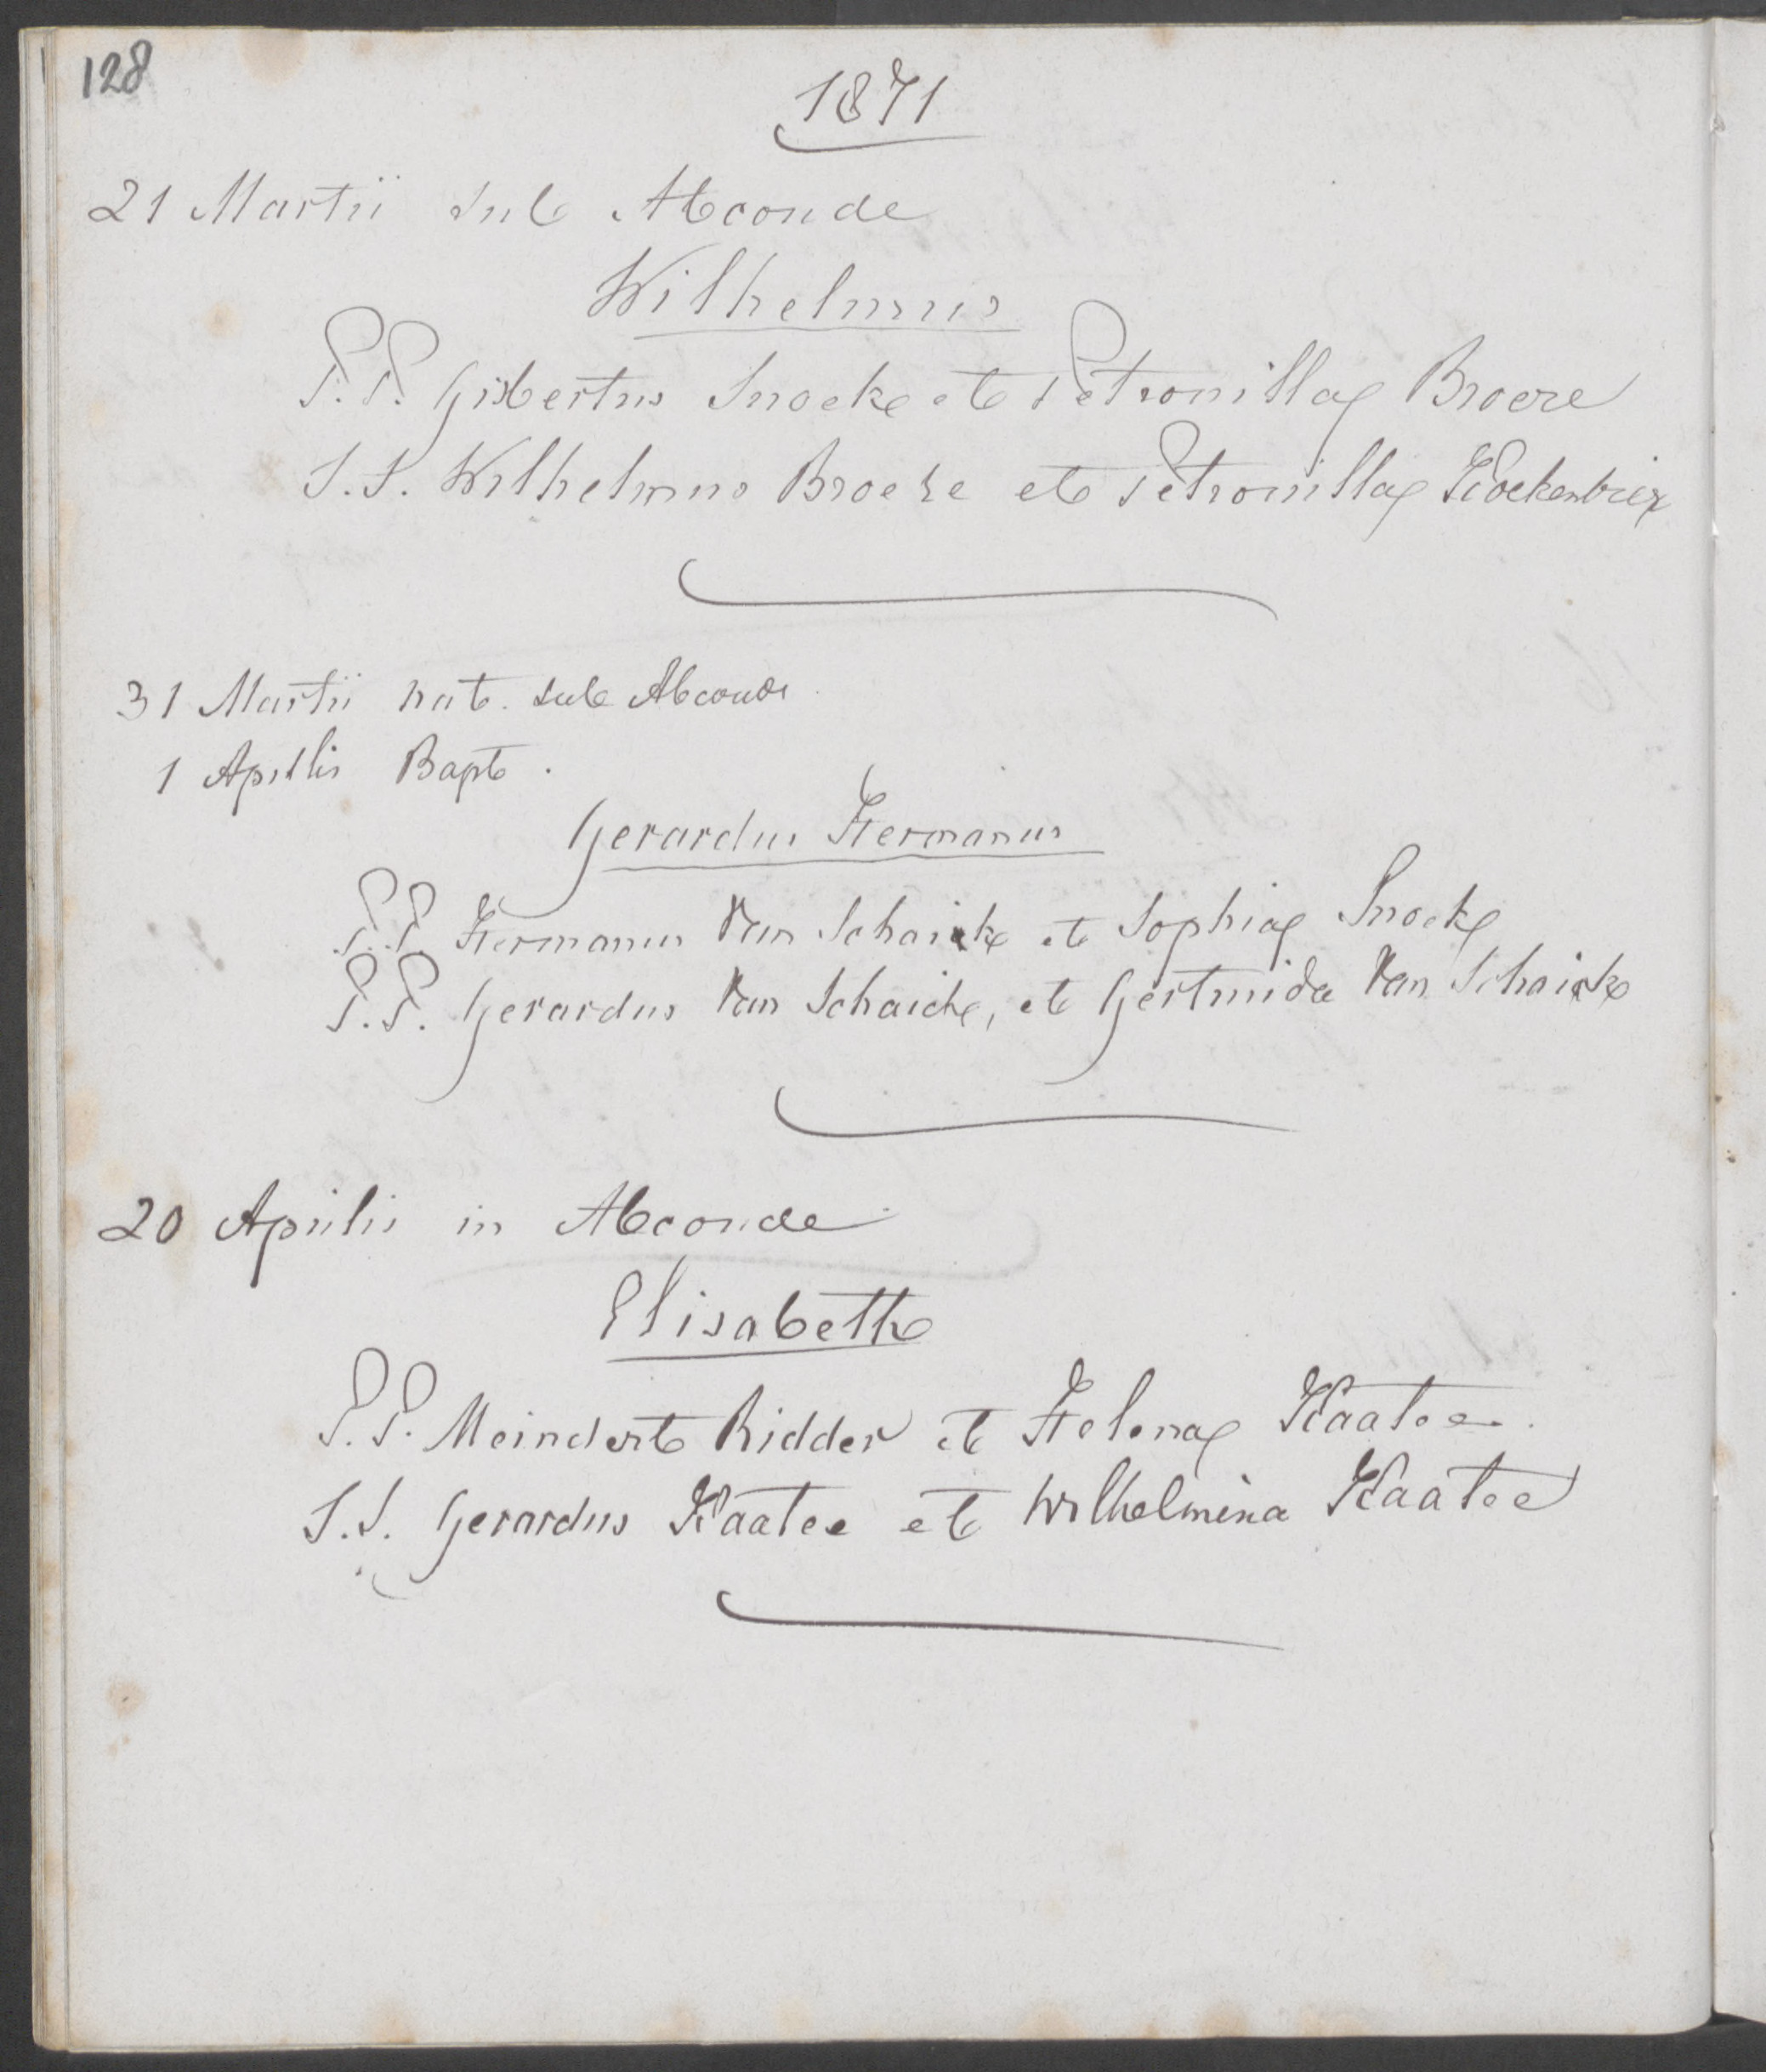 128
1871
21 Martii sub Abconde
Wilhelmus
P.P. Gisbertus Snoek et Petronilla Broere
S.S. Wilhelmus Broere et Petronilla
31 Martii nat. sub Abconde
1 Aprilis Bapt.
Gerardus Hermanus
P.P. Hermanus Van Schaick et Sophia Snoek
P.P. Gerardus Van Schaick, et Gertruida Van Schaick
20 Aprilis in Abconde
Elisabeth
P.P. Meindert Ridder et Helena Kaatee.
S.S. Gerardus Kaatee et Wilhelmina Kaatee